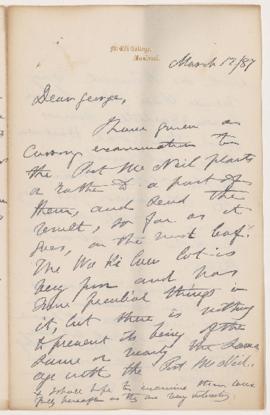 McGill College,
Montreal.
March 17/87
Dear George,
I have given a
cursory examination to
the Port McNeil plants
or rather to a part of
them, and send the
result, so far as it
goes, on the next leaf.
The lot is
very fine and has
some peculiar things in
it, but there is nothing
to prevent its being of the
same or nearly the same
age with the Port McNeil.
I shall hope to examine them more
fully hereafter as they are very interesting